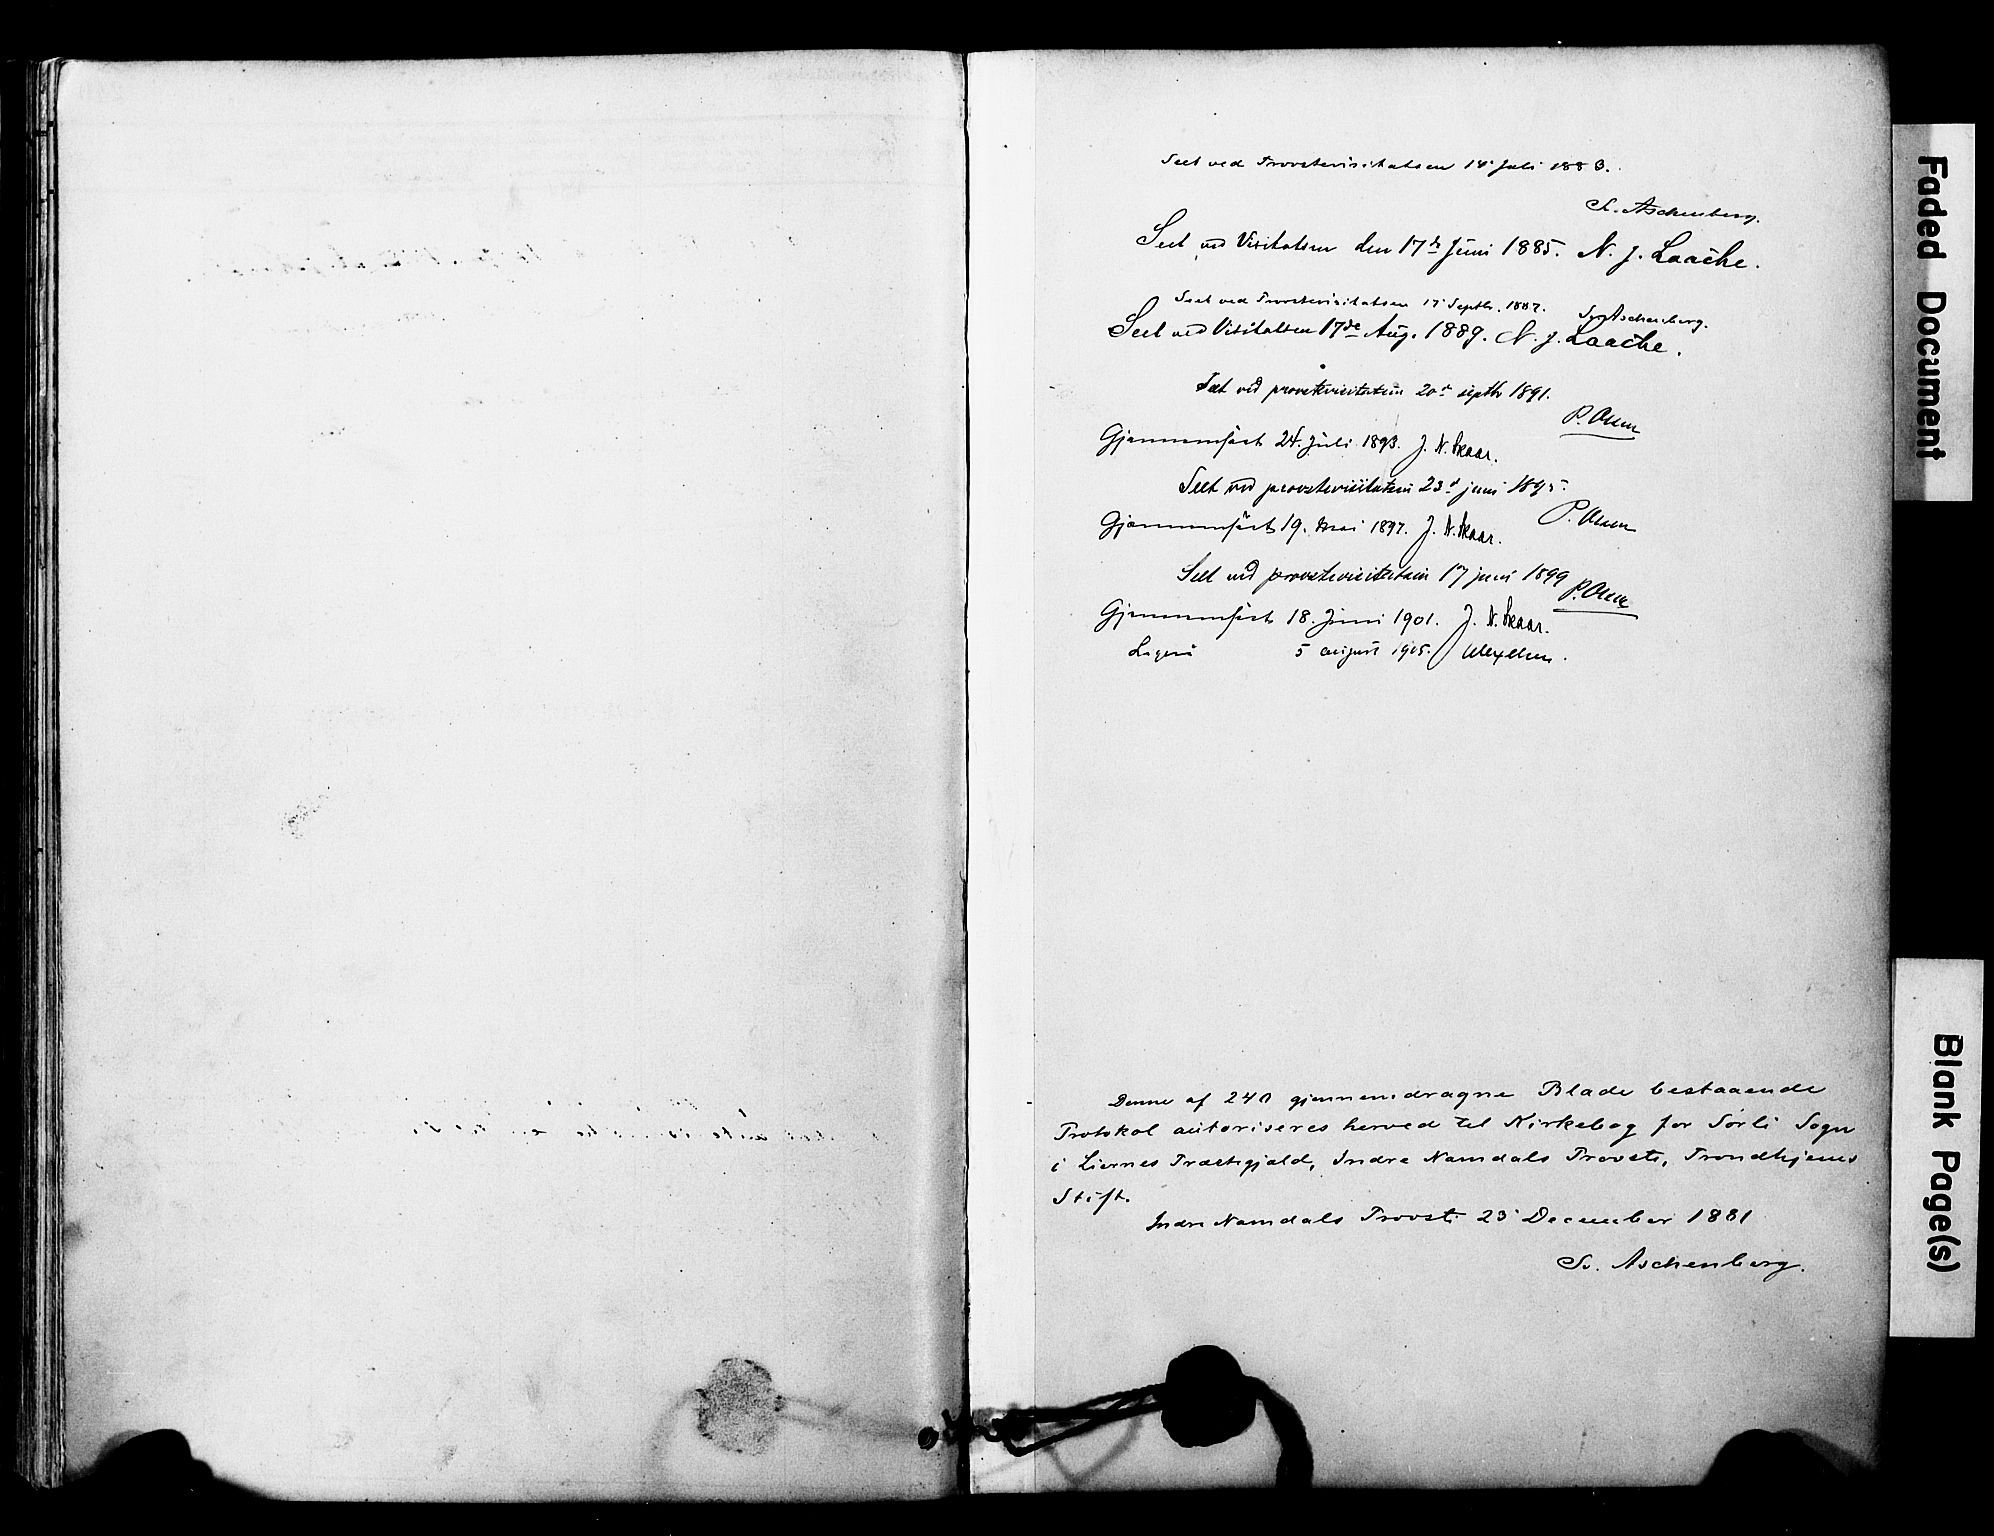 Seet ved Provstevisitatsen 14' Juli 1883.
S. Aschenberg.
Seet ved Visitatsen den 17de Juni 1885. N. J. Laache.
Seet ved Provstevisitatsen 17' Septbr. 1887. Sv Aschenberg.
Seet ved Visitatsen 17de Aug. 1889. N. J. Laache.
Seet ved provstevisitatsen 20de septbr 1891.
P. Olsen
Gjennemseet 24. Juli 1893. J. N. Skaar.
Seet ved provstevisitatsen 23d juni 1895.
P. Olsen
Gjennemseet 19. Mai 1897. J. N. Skaar.
Seet ved provstevisitatsen 17 juni 1899 P. Olsen
Gjennemseet 18. Juni 1901. J. N. Skaar.
5 august 1905. Wexelsen.
Denne af 240 gjennemdragne Blade bestaaende
Protokol autoriseres herved til Kirkebog for Sørli Sogn
i Liernes Præstegjæld, Indre Namdals Provsti, Trondhjems
Stift.
Indre Namdals Provsti 23' December 1881
Sv. Aschenberg.
Faded Document
Blank Page(s)